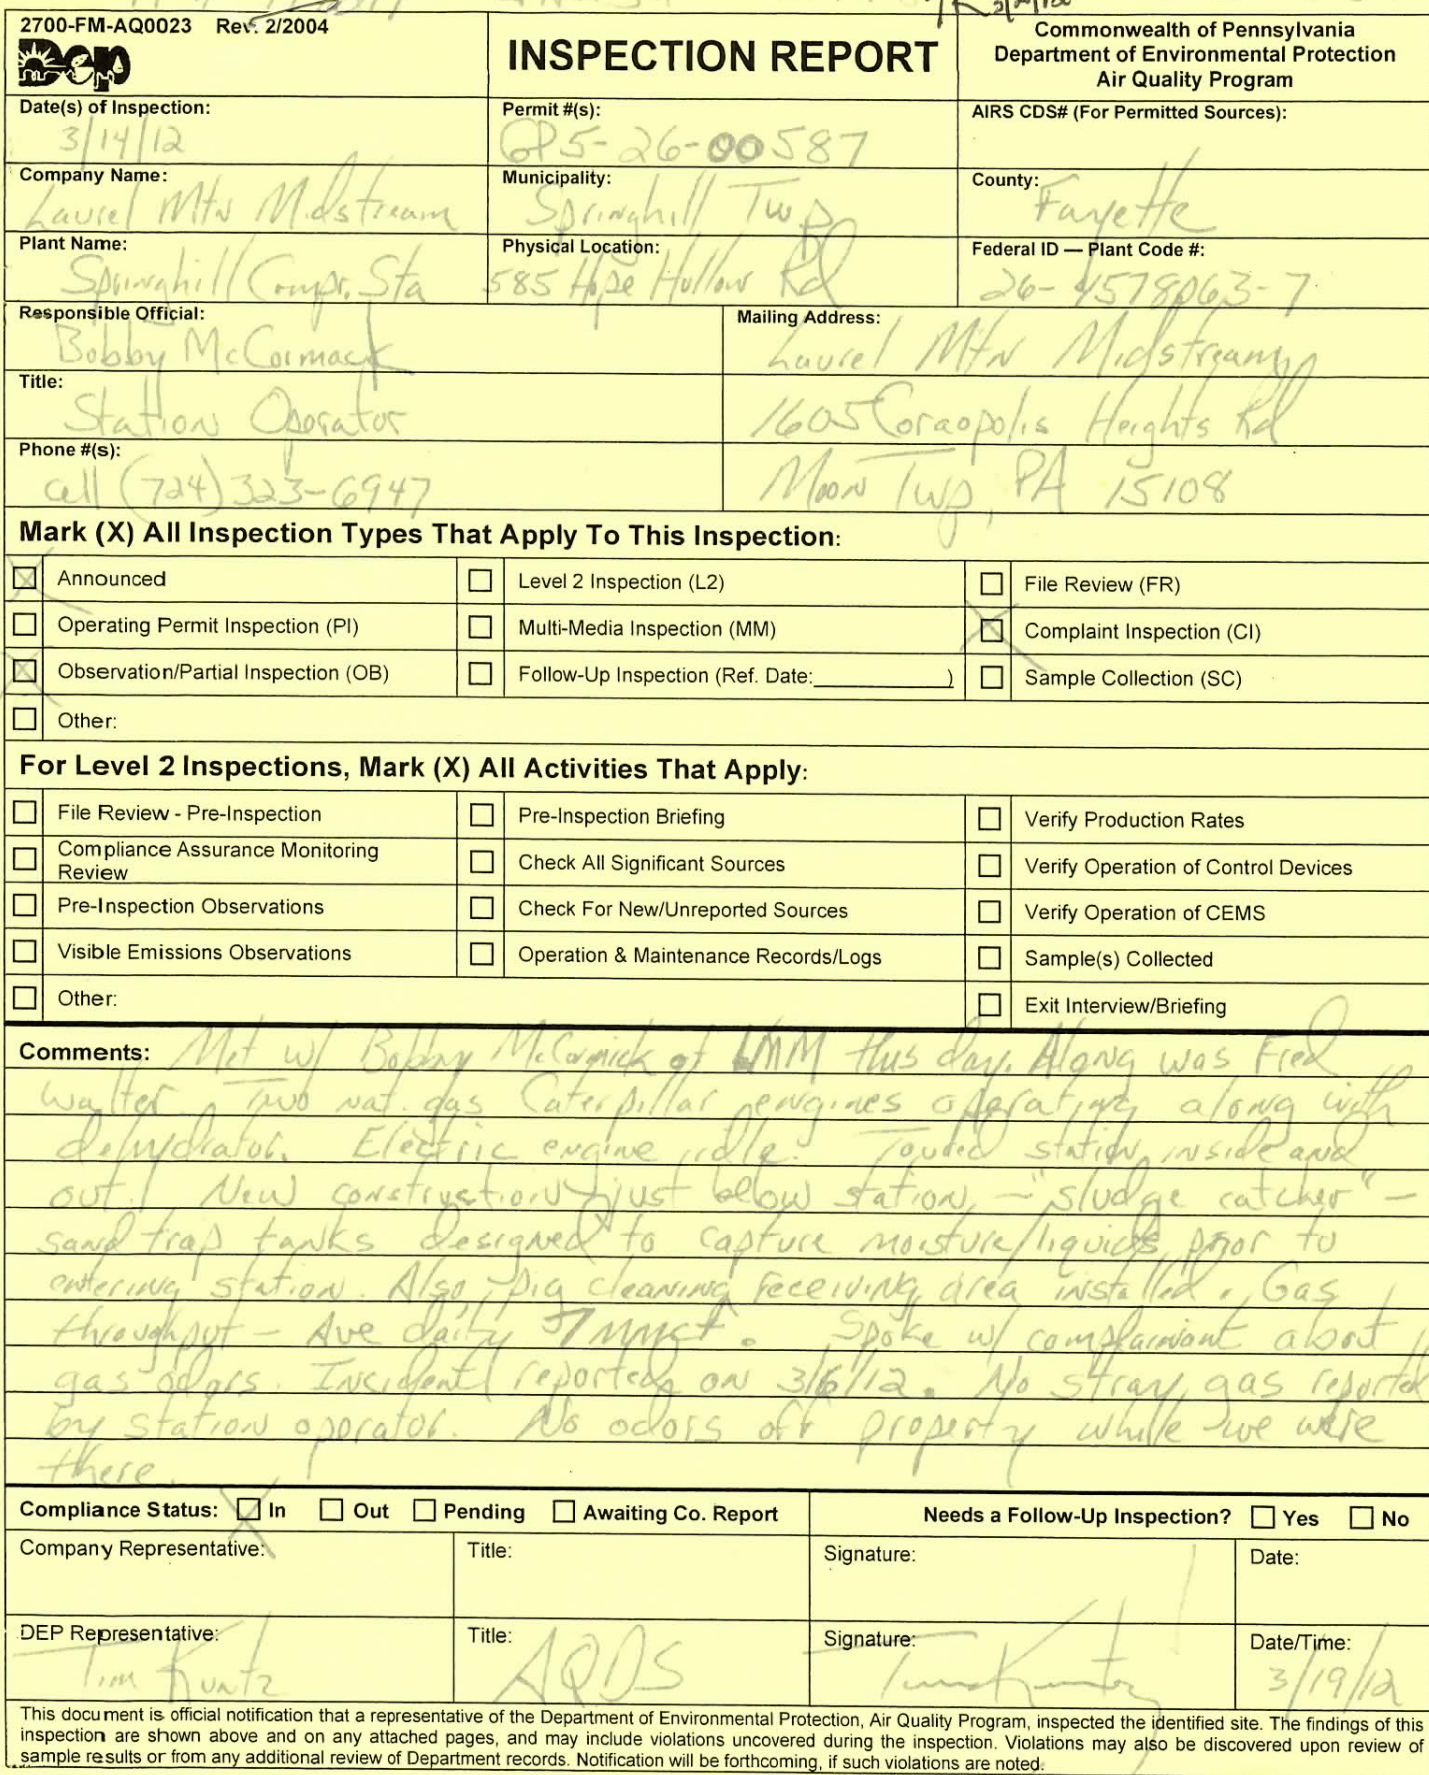 2700-FM-AQ0023 Rev. 2/2004
Dep
INSPECTION REPORT
Commonwealth of Pennsylvania
Department of Environmental Protection
Air Quality Program
Date(s) of Inspection:
3/14/12
Permit #(s):
GP5-26-00587
AIRS CDS# (For Permitted Sources):
Company Name:
Laurel Mtn Midstream
Municipality:
Springhill Twp
County:
Fayette
Plant Name:
Springhill Compr. Sta
Physical Location:
585 Hope Hollow Rd
Federal ID — Plant Code #:
26-4578063-7
Responsible Official:
Bobby McCormack
Mailing Address:
Laurel Mtn Midstream
Title:
Station Operator
1605 Coraopolis Heights Rd
Phone #(s):
cell (724) 323-6947
Moon Twp, PA 15108
Mark (X) All Inspection Types That Apply To This Inspection:
Announced
Level 2 Inspection (L2)
File Review (FR)
Operating Permit Inspection (PI)
Multi-Media Inspection (MM)
Complaint Inspection (CI)
Observation/Partial Inspection (OB)
Follow-Up Inspection (Ref. Date:__________)
Sample Collection (SC)
Other:
For Level 2 Inspections, Mark (X) All Activities That Apply:
File Review - Pre-Inspection
Pre-Inspection Briefing
Verify Production Rates
Compliance Assurance Monitoring
Review
Check All Significant Sources
Verify Operation of Control Devices
Pre-Inspection Observations
Check For New/Unreported Sources
Verify Operation of CEMS
Visible Emissions Observations
Operation & Maintenance Records/Logs
Sample(s) Collected
Other:
Exit Interview/Briefing
Comments: Met w/ Bobby McCormick of LMM this day. Along was Fred
Walter. Two nat. gas Caterpillar engines operating along with
dehydrator. Electric engine idle. Toured station inside and
out. New construction just below station - "sludge catcher" -
sand trap tanks designed to capture moisture/liquids prior to
entering station. Also, pig cleaning receiving area installed. Gas
throughput - Ave daily 37 MMcf. Spoke w/ complainant about
gas odors. Incident reported on 3/6/12. No stray gas reported
by station operator. No odors off property while we were
there.
Compliance Status: In Out Pending Awaiting Co. Report
Needs a Follow-Up Inspection? Yes No
Company Representative:
Title:
Signature:
Date:
DEP Representative:
Tim Kuntz
Title:
AQDS
Signature:
Tim Kuntz
Date/Time:
3/19/12
This document is official notification that a representative of the Department of Environmental Protection, Air Quality Program, inspected the identified site. The findings of this
inspection are shown above and on any attached pages, and may include violations uncovered during the inspection. Violations may also be discovered upon review of
sample results or from any additional review of Department records. Notification will be forthcoming, if such violations are noted.